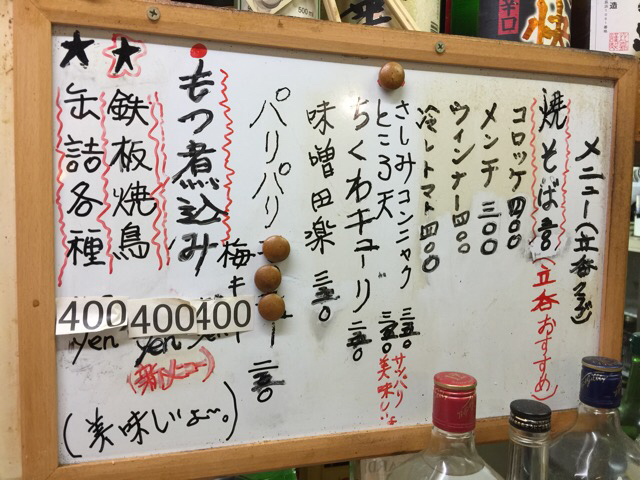 メニュー(立呑み)
焼そば 吾(立呑おすすめ)
コロッケ 四〇〇
メンチ 三〇〇
ウィンナー 四〇〇
冷しトマト 四〇〇
さしみコンニャク 三五〇 サッパリ
ところ天 三五〇 美味しいよ
ちくわキューリ 二五〇
味噌田楽 三五〇
パリパリ
梅キューリ 二五〇
もつ煮込み 400
★鉄板焼鳥 400 yen
(新メニュー)
★缶詰各種 400 yen
(美味しいよ〜。)
辛口
快
造
500ml